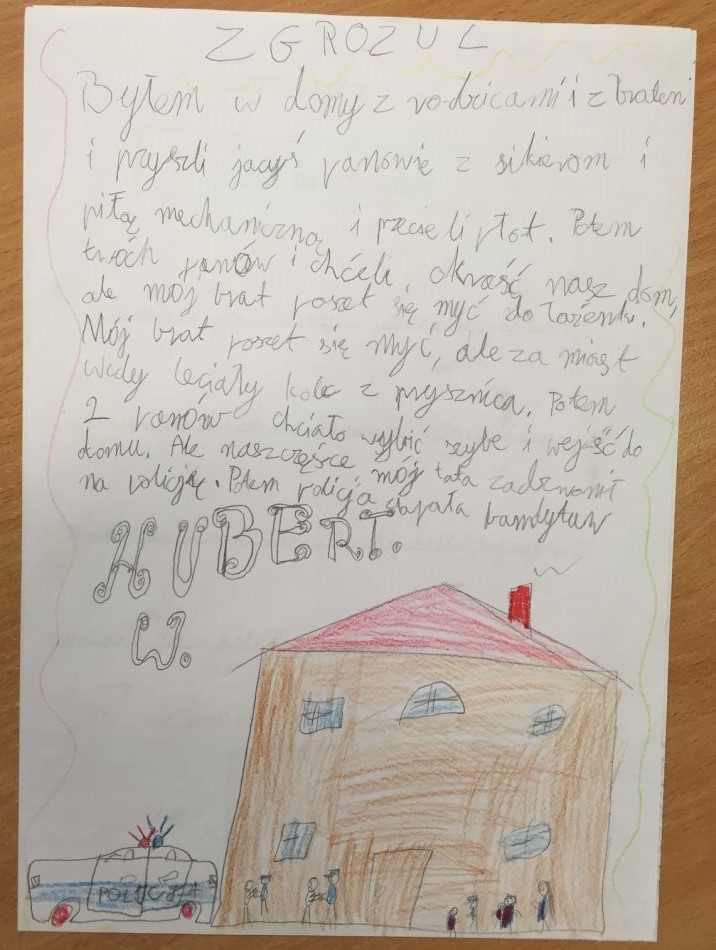 ZGROZUL
Byłem w domy z rodzicami i z bratem
i pryszli jacyś panowie z sikierom i
piłą mechaniczną i przecieli płot. Potem
twóch panów i chćeli okraść nasz dom,
ale mój brat poszet się myć do łazienki.
Mój brat poszet się myć, ale za miast
wody leciały kolce z prysznica. Potem
2 panów chciało wybić szybe i wejść do
domu. Ale naszczęście mój tata zadzwonił
na policję. Potem policja złapała bandytuw
HUBERT.
W.
POLICJA